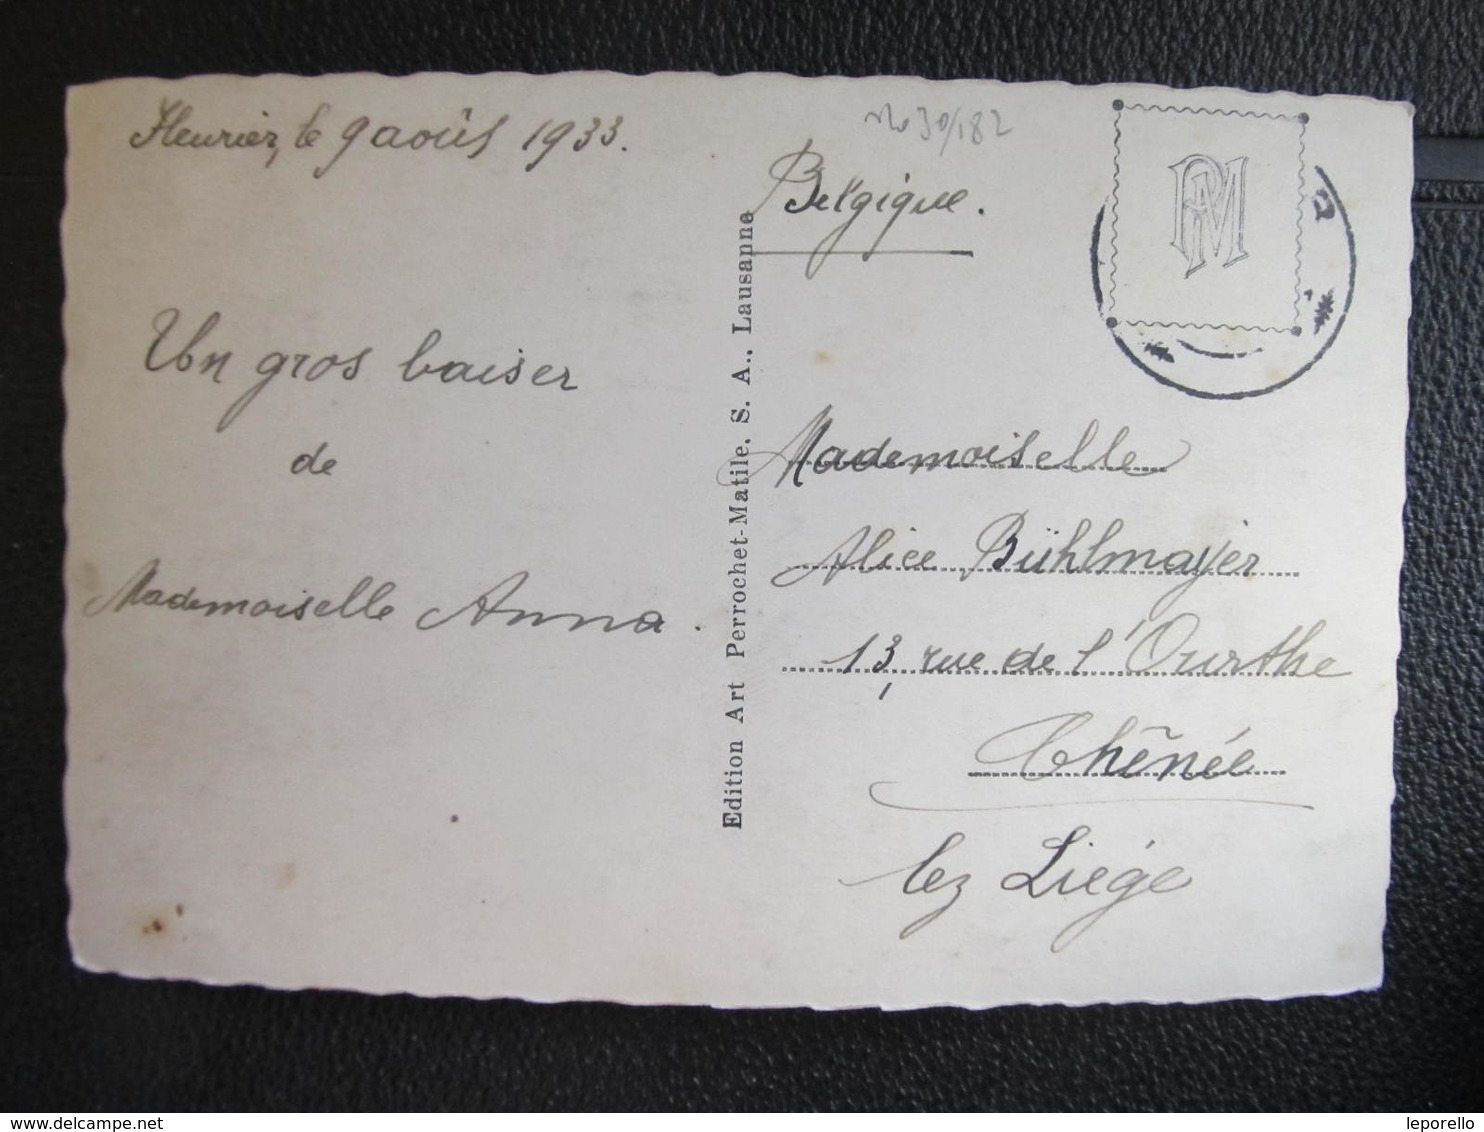 Fleurier, le 9 août 1933.
Un gros baiser
de
Mademoiselle Anna.
Edition Art Perrochet-Matile, S. A., Lausanne
No 30/182
Belgique.
PAM
Mademoiselle
Alice Bühlmayer
13, rue de l'Ourthe
Chênée
lez Liége
http://www.delcampe.net
leporello